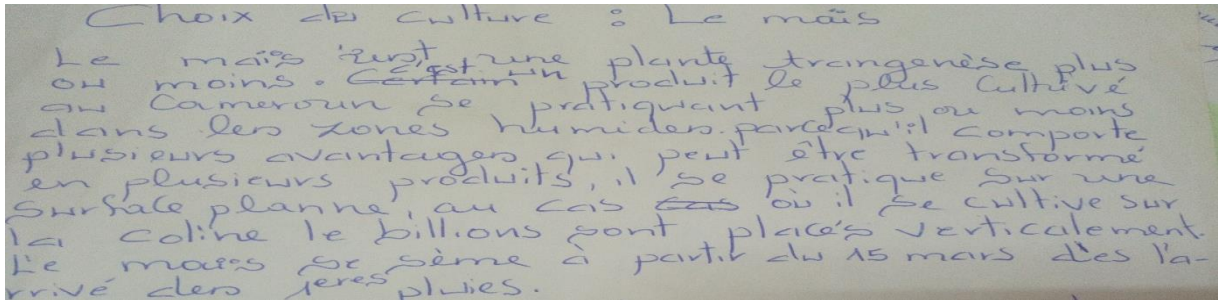 Choix de culture : Le maïs
Le maïs est une plante trangenèse plus
ou moins. C'est un produit le plus Cultivé
au Cameroun se pratiquant plus ou moins
dans les zones humides. parcequ'il comporte
plusieurs avantages qui peut être transformé
en plusieurs produits, il se pratique sur une
surface planne, au cas où il se cultive sur
la coline le billions sont placés verticalement.
Le maïs se sème à partir du 15 mars dès l'a-
rrivé des 1eres pluies.